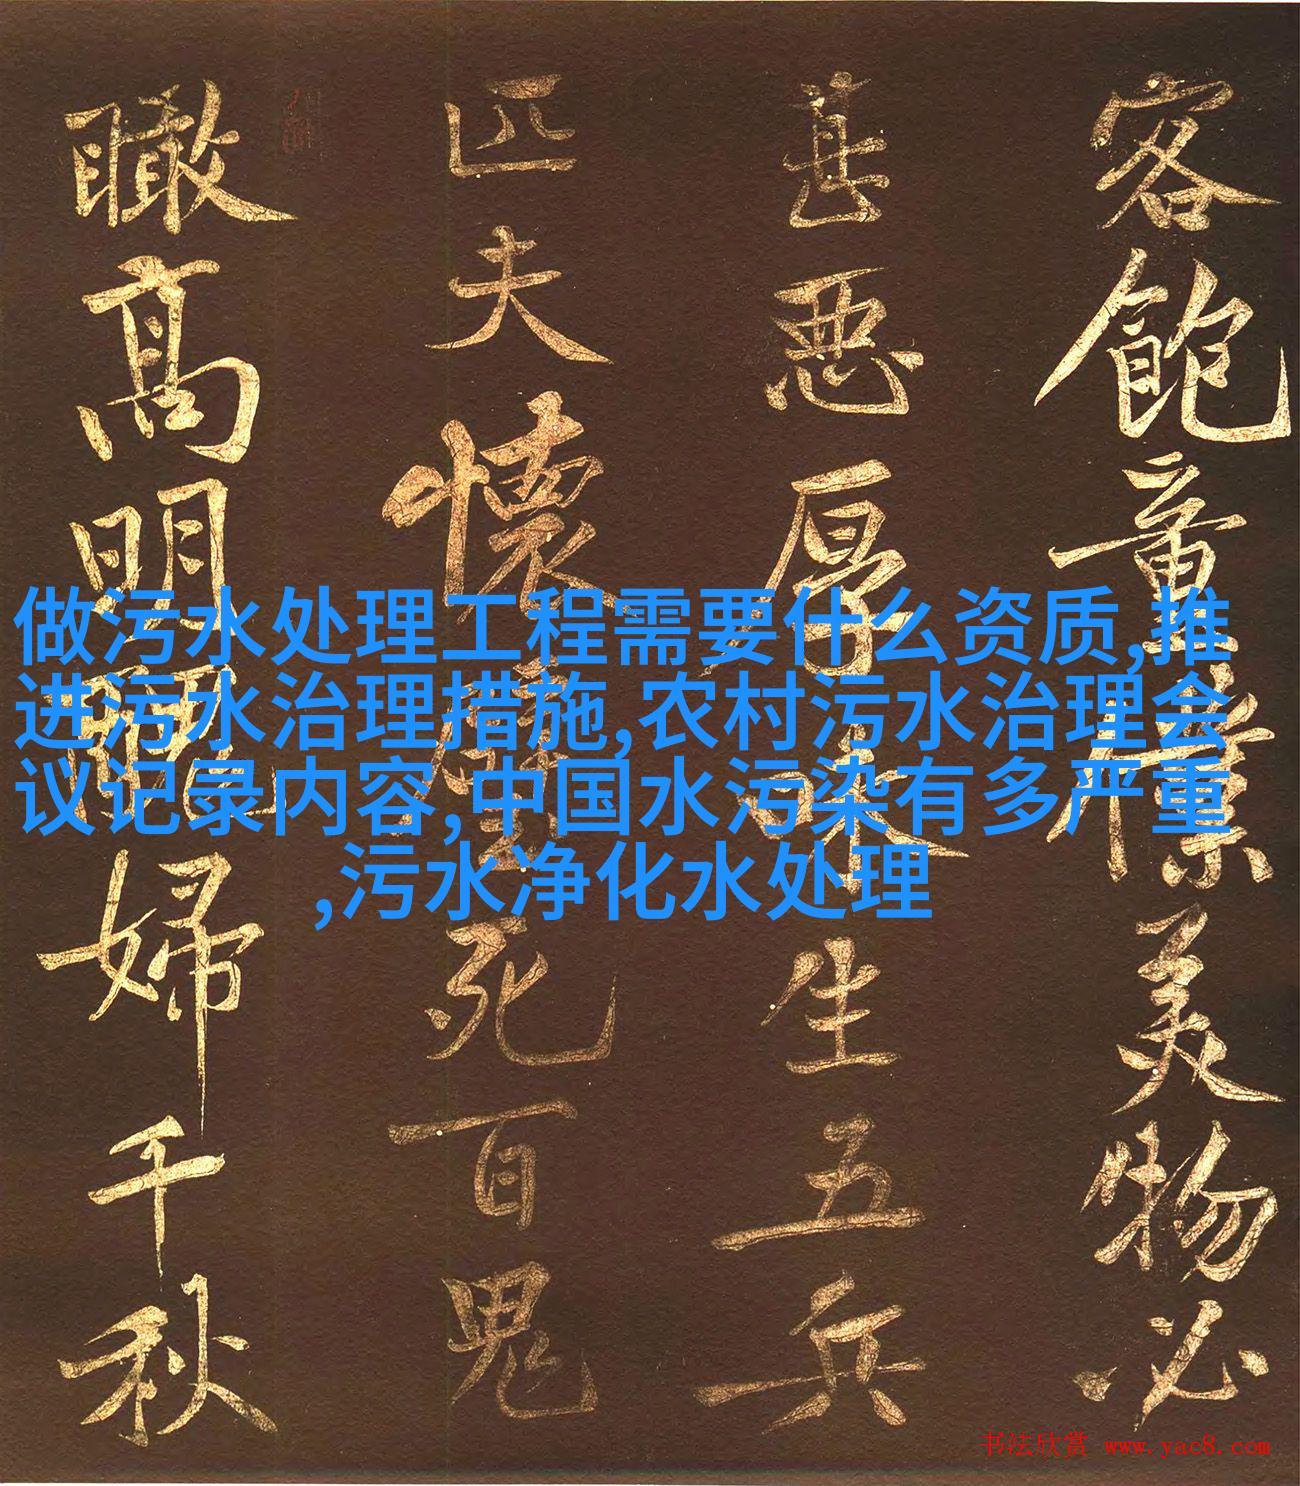 客飽童僕美物必
甚惡厚味生五兵
匹夫懷璧死百鬼
瞰高明醜婦千秋
做污水处理工程需要什么资质,推
进污水治理措施,农村污水治理会
议记录内容,中国水污染有多严重
,污水净化水处理
书法欣赏 www.yac8.com